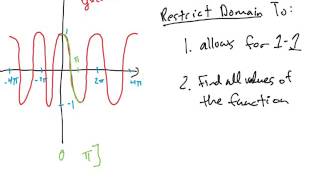 Restrict Domain To:
1. allows for 1-1
2. Find all values of
the function
-4π -2π π 2π 4π
-1
0 π]